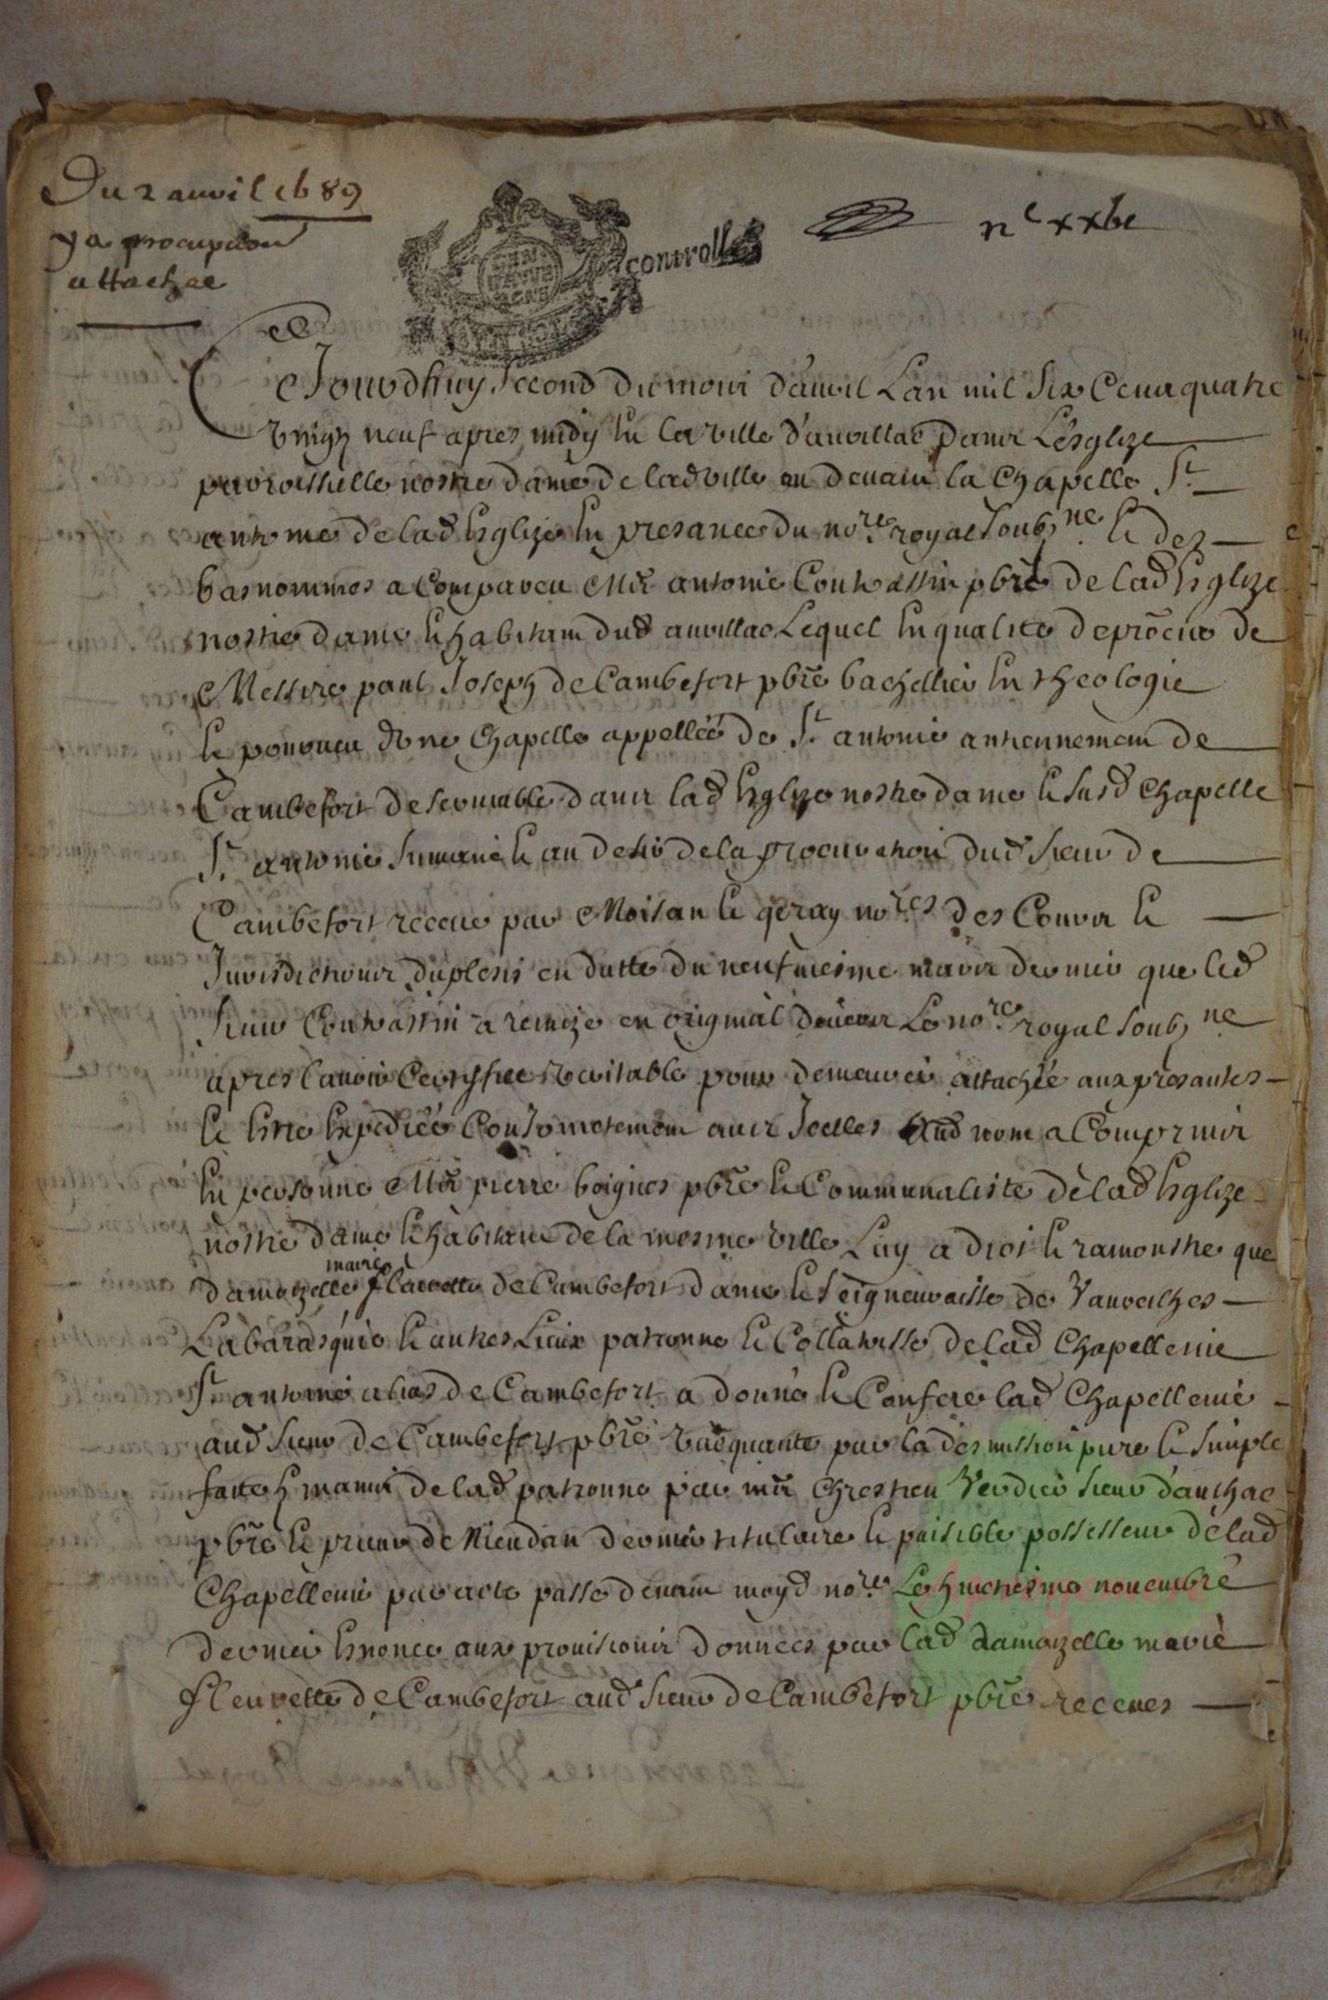 Du 2 avril 1689
y a procu͠ation
attachée
controllé
n^e xxbi
Jourdhuy second du mois d'avril l'an mil six cens quatre
vingz neuf apres midy en la ville d'aurillac dans l'esglize
parroissielle nostre dame de lad ville en devant la chapelle S^t
antoine de lad Esglize en presance du no^re royal soubz^ne et des
bas nommes a compareu M^e antoine Contrastin pb͠re de lad Esglize
nostre dame et habitant dud aurillac lequel en qualité de pro͠cur de
Messire paul Joseph de Cambefort pb͠re bachellier en theologie
et pourveu d'une chapelle appellée de S^t antoine antiennement de
Cambefort deservable dans lad Esglize nostre dame et susd chapelle
S^t antoine suivant et au desir de la procuration dud sieur de
Cambefort receue par Moisan et geray no^res des Cours et
Jurisdictions du plesis en datte du neufviesme mars dernier que led
sieur Contrastin a remize en original devers le no^re royal soubz^ne
apres l'avoir certiffiée veritable pour demeurer attachée aux presantes
et estre Expediée Conjointement avec Icelles Aud nom a Comprins
En personne M^e pierre boignes pb͠re et Communaliste de lad Esglize
nostre dame et habitant de la mesme ville luy a dict et ramonstre que
damoizelle marie fleurette de Cambefort dame et seigneuraisse de Vaureilhes
Labarasquie et autres lieux patronne et Collatrisse de lad Chapellenie
S^t antoine alias de Cambefort a donné et Conferé lad Chapellenie
aud sieur de Cambefort pb͠re vacquante par la desmission pure et simple
faite ez mains de lad patronne par m^e chrestien Verdier sieur d'authac
pb͠re et prieur de Nieudan dernier titulaire et paisible possesseur de lad
Chapellenie par acte passé devant moyd no^re le huictiesme novembre
dernier Enoncé aux provisions données par lad damoizelle marie
fleurette de Cambefort aud sieur de Cambefort pb͠re receues